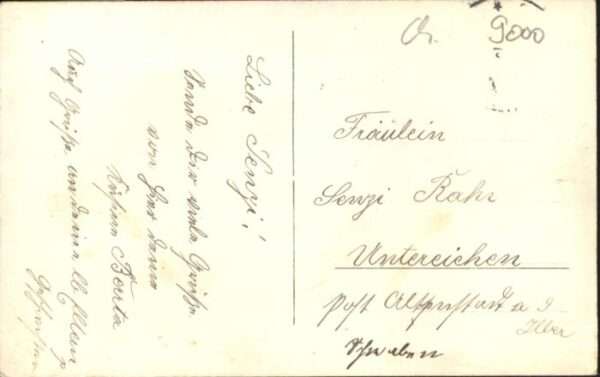 Liebe Senzi!
Sende dir viele Grüße
von hier deine
Kusine Berta
Auch Grüße an deine lb. Eltern
Ch.
9000
Fräulein
Senzi Rahr
Untereichen
Post Altenstadt a. d.
Iller
Schwaben